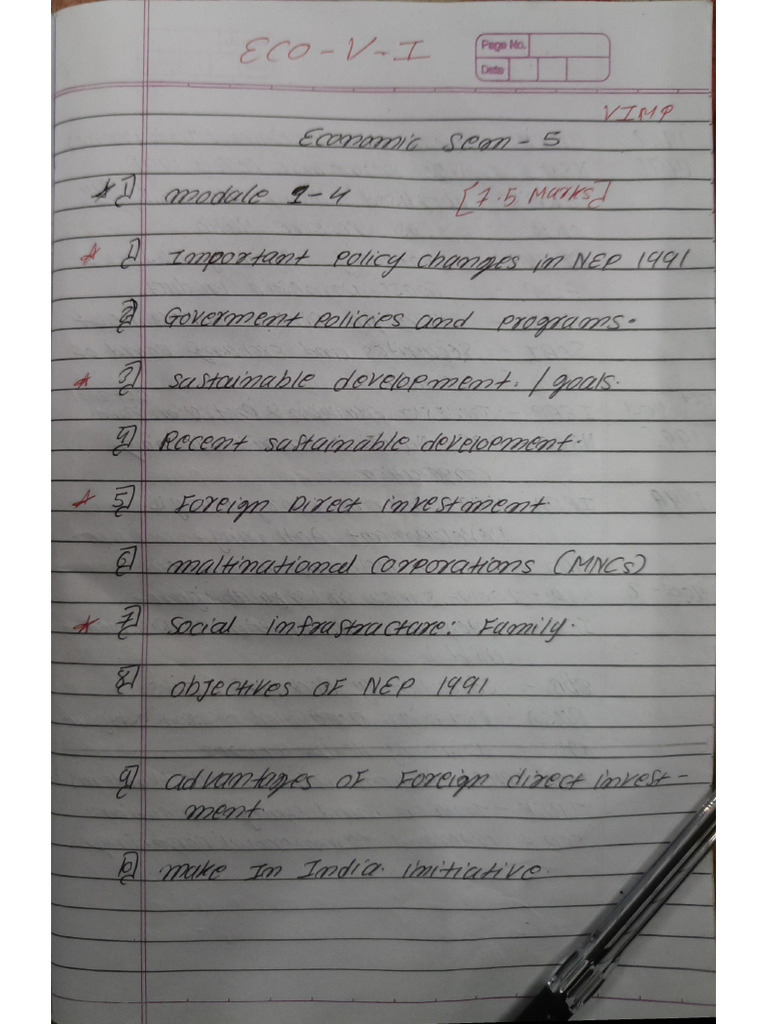 ECO-V-I
Page No.
Date
VIMP
Economic Sem-5
*1] modale 1-4 [7.5 Marks]
* 1] Important policy changes in NEP 1991
2] Goverment policies and programs.
* 3] sustainable development. / goals.
4] Recent sustainable development.
* 5] Foreign Direct investment.
6] maltinational Corporations (MNCs)
* 7] Social infrastractare: Family.
8] objectives OF NEP 1991
9] advantages OF Foreign direct invest-
ment.
10] make In India. imitiative.